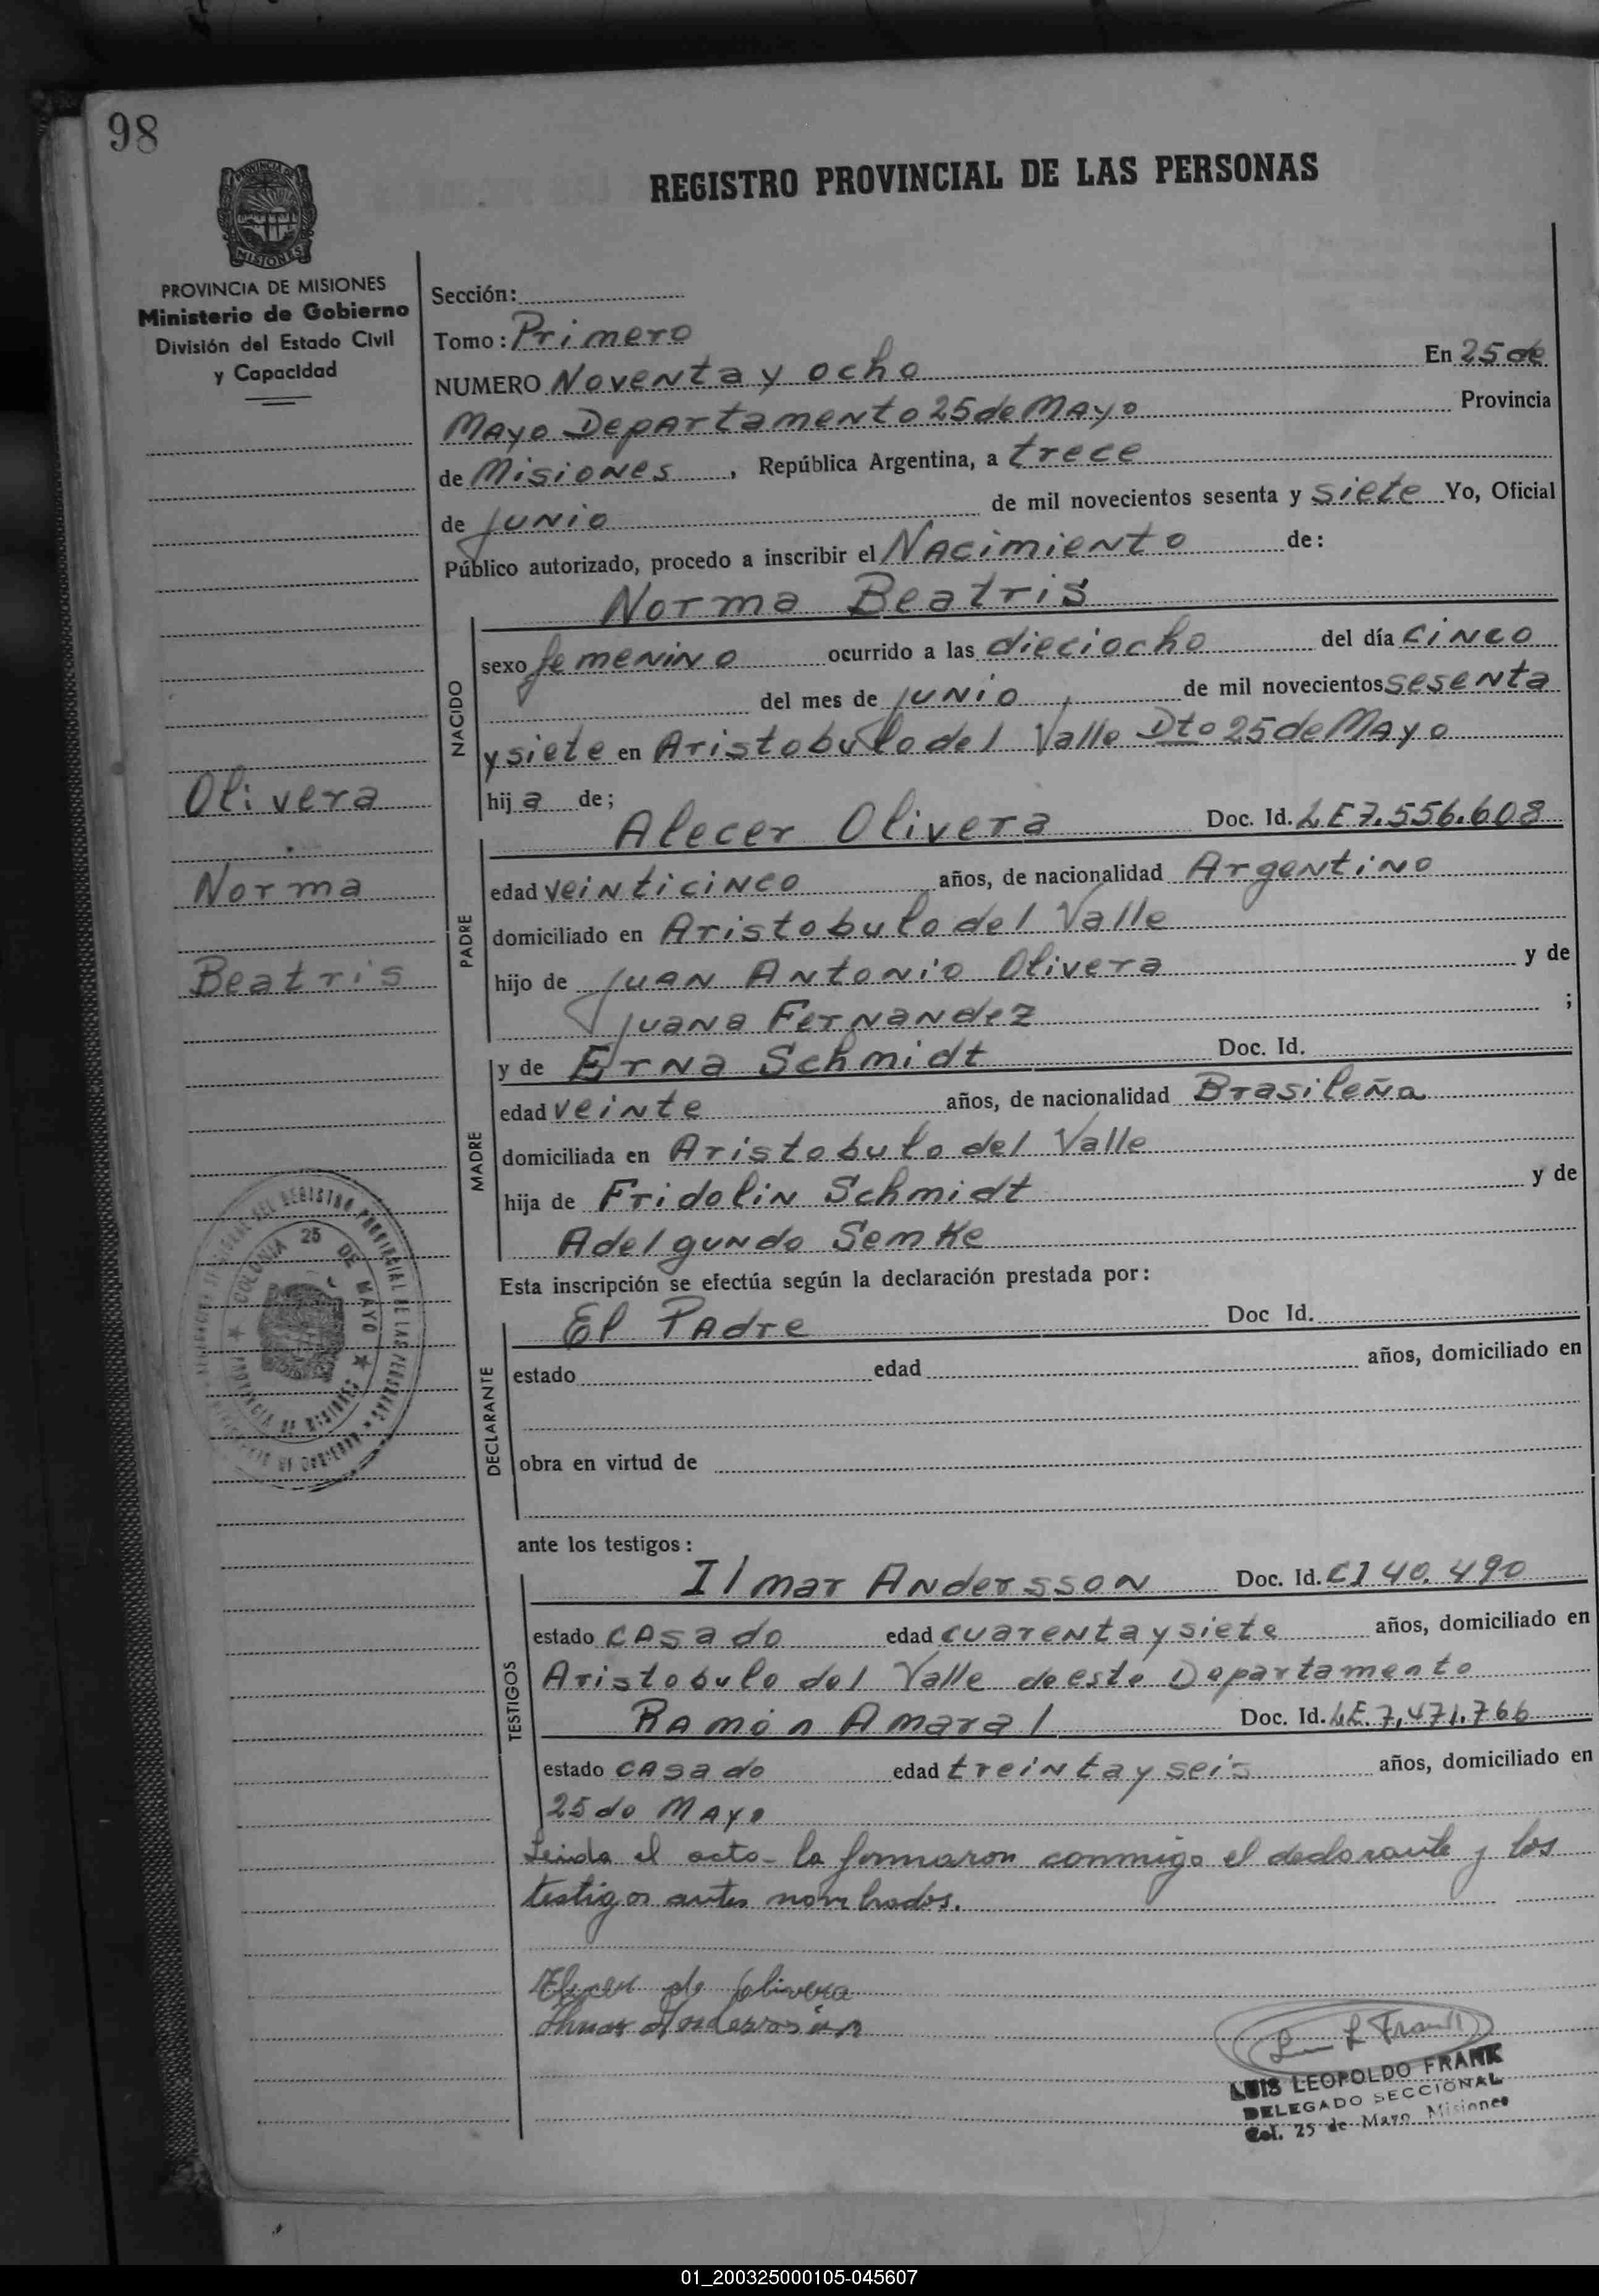 98
REGISTRO PROVINCIAL DE LAS PERSONAS
PROVINCIA DE
MISIONES
PROVINCIA DE MISIONES
Ministerio de Gobierno
División del Estado Civil
y Capacidad
Sección:
Tomo: Primero
NUMERO Noventa y ocho En 25 de
Mayo Departamento 25 de Mayo Provincia
de Misiones, República Argentina, a trece
de junio de mil novecientos sesenta y siete Yo, Oficial
Público autorizado, procedo a inscribir el Nacimiento de:
Norma Beatris
NACIDO
sexo femenino ocurrido a las dieciocho del día cinco
del mes de junio de mil novecientos sesenta
y siete en Aristobulo del Valle Dto 25 de Mayo
hija de;
Olivera
Norma
Beatris
PADRE
Alecer Olivera Doc. Id. LE 7.556.608
edad veinticinco años, de nacionalidad Argentino
domiciliado en Aristobulo del Valle
hijo de Juan Antonio Olivera y de
Juana Fernandez ;
MADRE
y de Erna Schmidt Doc. Id.
edad veinte años, de nacionalidad Brasileña
domiciliada en Aristobulo del Valle
hija de Fridolin Schmidt y de
Adelgundo Semke
Esta inscripción se efectúa según la declaración prestada por:
DECLARANTE
El Padre Doc Id.
estado edad años, domiciliado en
obra en virtud de
DEL REGISTRO PROVINCIAL DE LAS PERSONAS
COLONIA 25 DE MAYO
PROVINCIA DE MISIONES
ante los testigos:
TESTIGOS
Ilmar Andersson Doc. Id. CI 40.490
estado casado edad cuarenta y siete años, domiciliado en
Aristobulo del Valle de este Departamento
Ramón Amaral Doc. Id. LE. 7,471.766
estado casado edad treinta y seis años, domiciliado en
25 de Mayo
Leida el acta - la firmaron conmigo el declarante y los
testigos antes nombrados.
de Olivera
Luis L Frank
LUIS LEOPOLDO FRANK
DELEGADO SECCIONAL
Col. 25 de Mayo Misiones
01_200325000105-045607